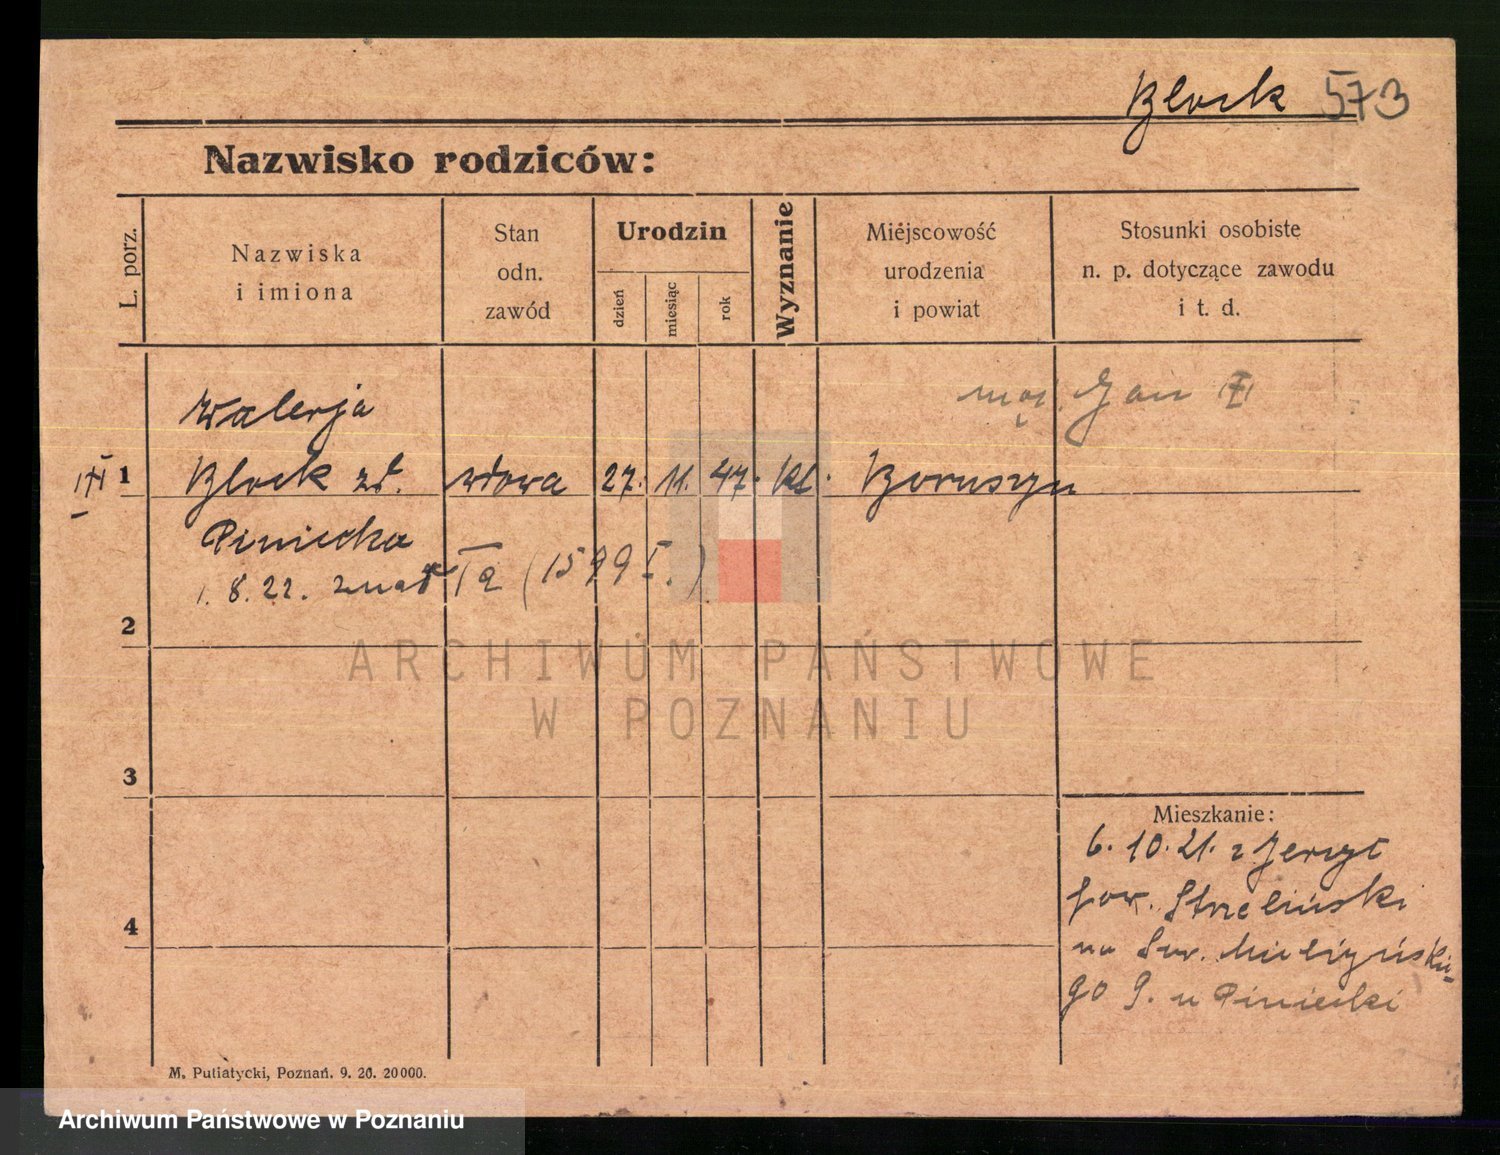 Block 573
Nazwisko rodziców:
L. porz.
Nazwiska
i imiona
Stan
odn.
zawód
Urodzin
dzień
miesiąc
rok
Wyznanie
Miejscowość
urodzenia
i powiat
Stosunki osobiste
n. p. dotyczące zawodu
i t. d.
mąż Jan
Walerja
1 Block zd. wdowa 27. 11. 47. kt. Boruszyn
Piniecka
1. 8. 22. (1599 I.)
2
3
4
Mieszkanie:
6. 10. 21. z Jerzyc
pow. Strzeliński
na Św. Mielżyńskie-
go 9. u Piniecki
M. Putiatycki, Poznań. 9. 20. 20000.
ARCHIWUM PAŃSTWOWE
W POZNANIU
Archiwum Państwowe w Poznaniu